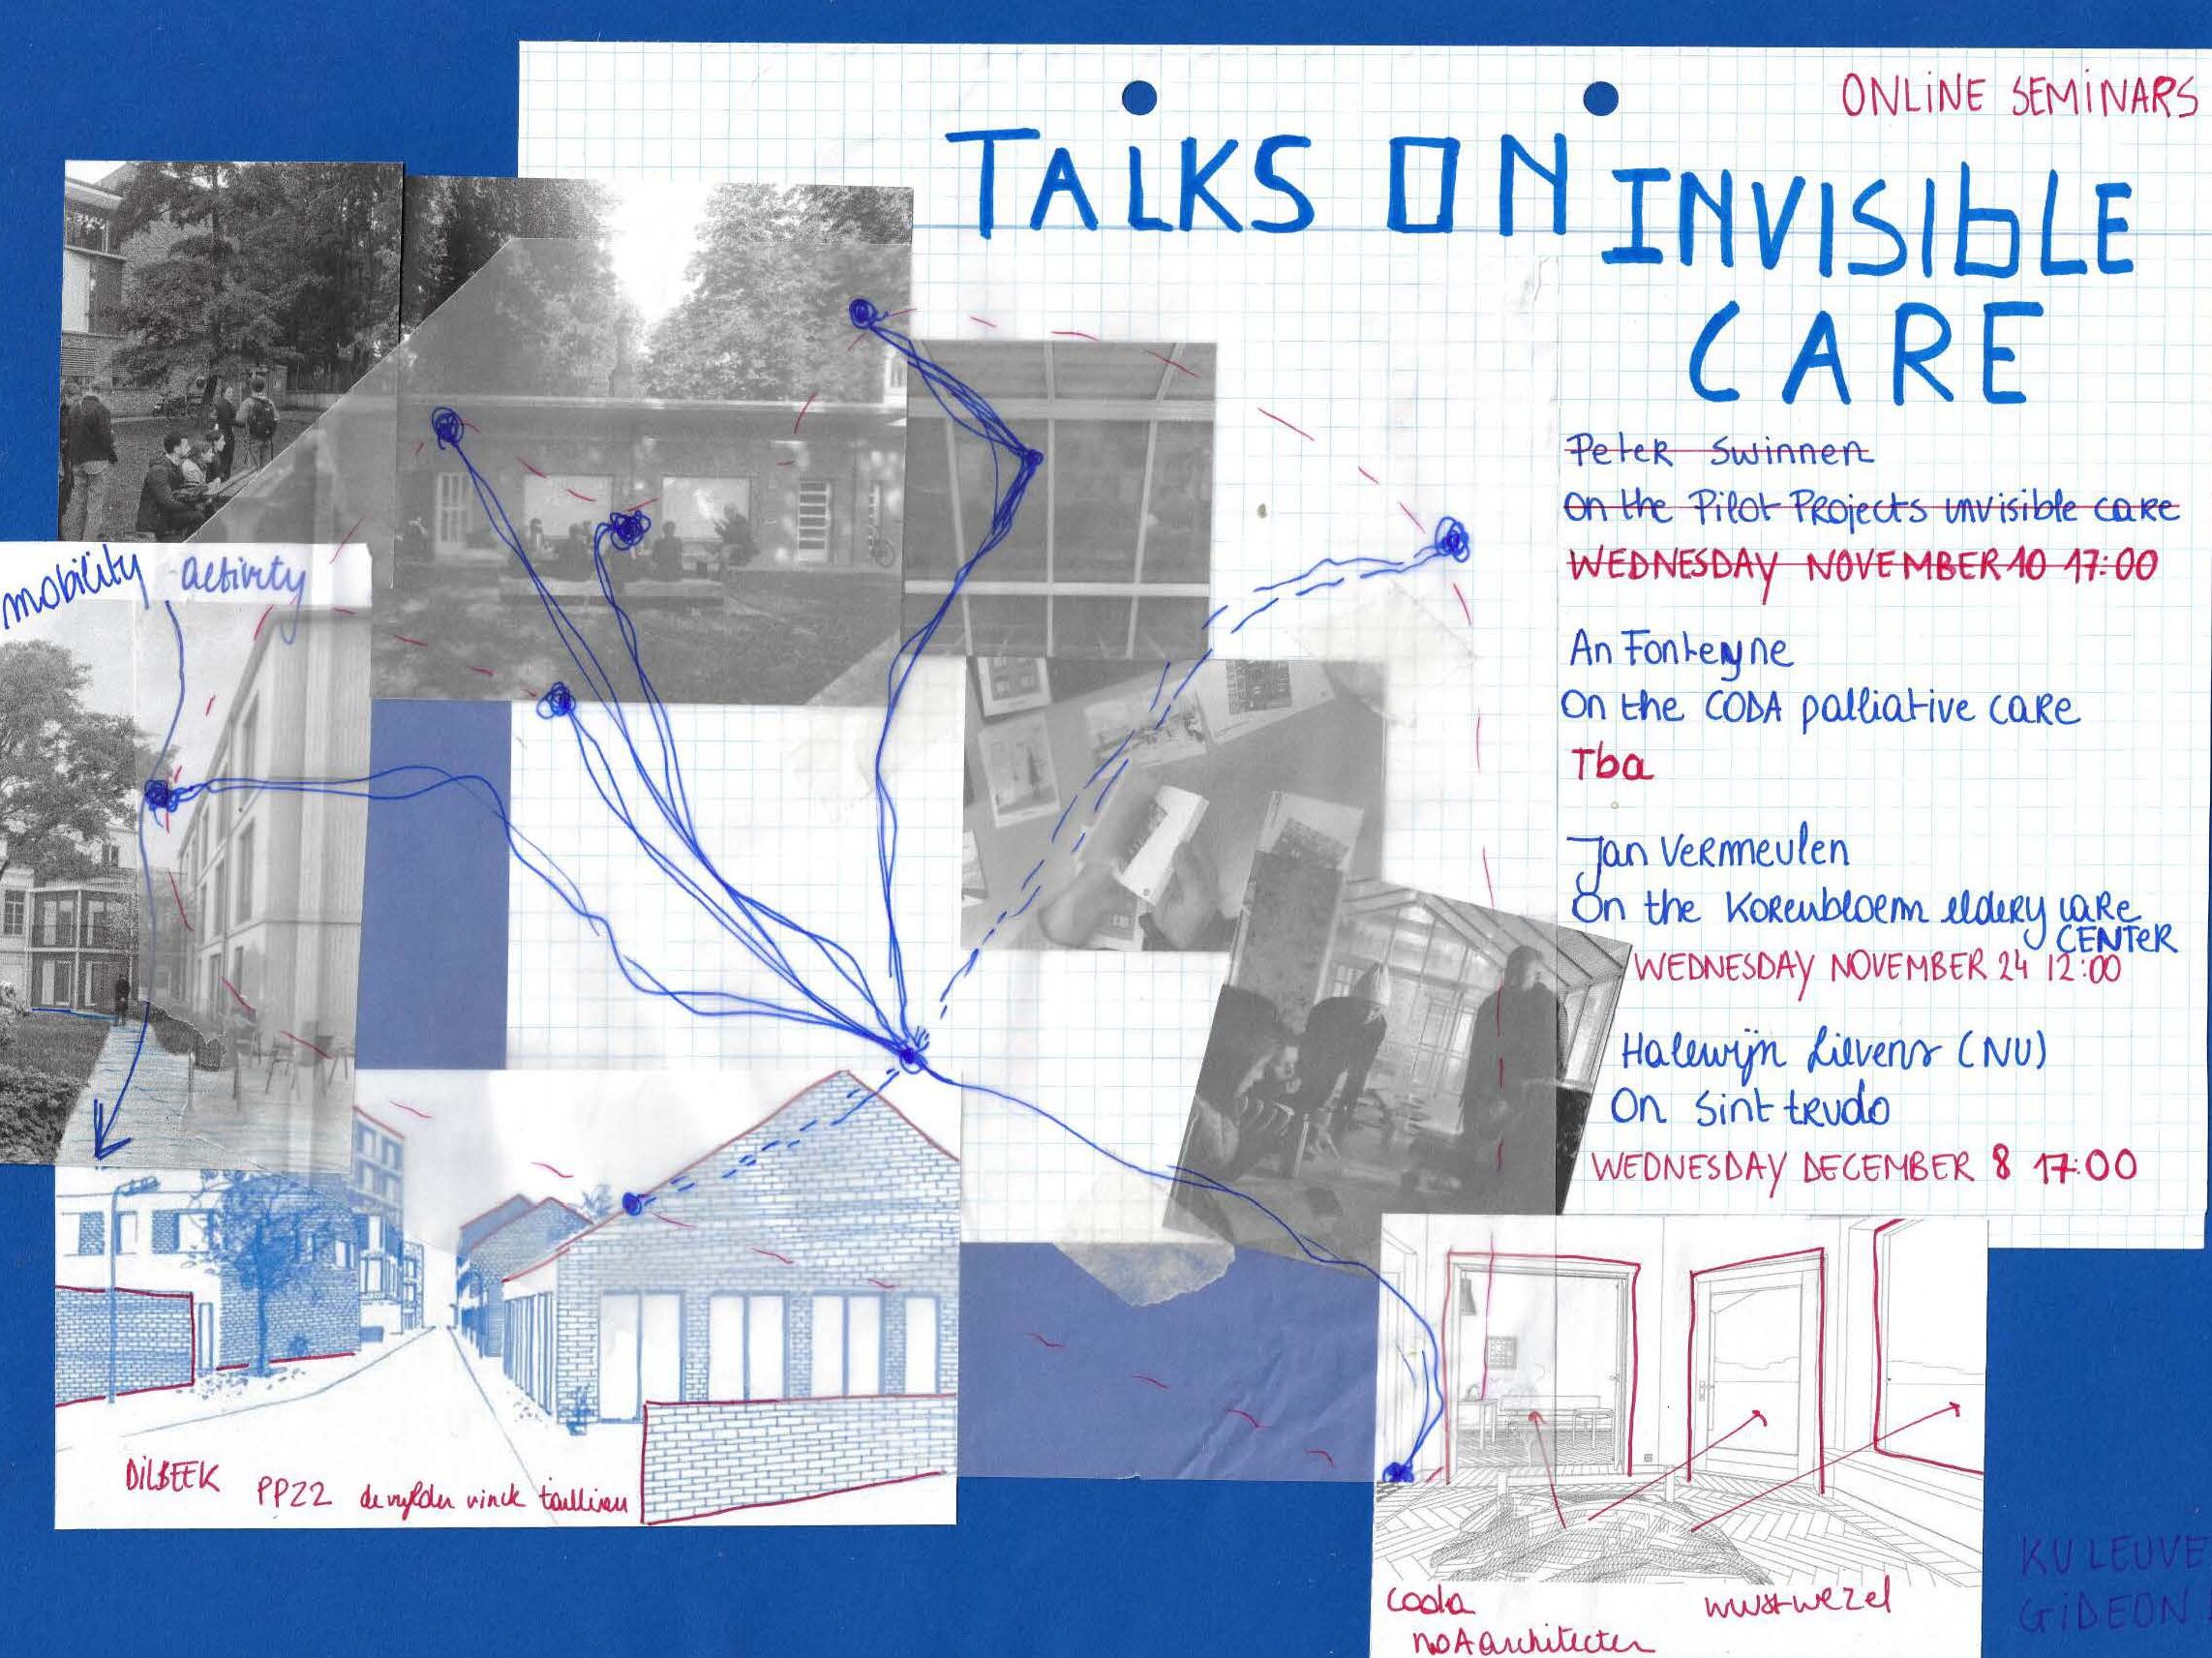 ONLINE SEMINARS
TALKS ON INVISIBLE
CARE
Peter Swinnen
On the Pilot Projects invisible care
WEDNESDAY NOVEMBER 10 17:00
An Fonteyne
On the CODA palliative care
Tba
Jan Vermeulen
On the Korenbloem eldery care
CENTER
WEDNESDAY NOVEMBER 24 12:00
Halewijn Lievens (NU)
On Sint trudo
WEDNESDAY DECEMBER 8 17:00
mobility activity
DILBEEK PPZZ de vylder vinck taillieu
coda wustwezel
noAarchitecten
KU LEUVE
GIDEON